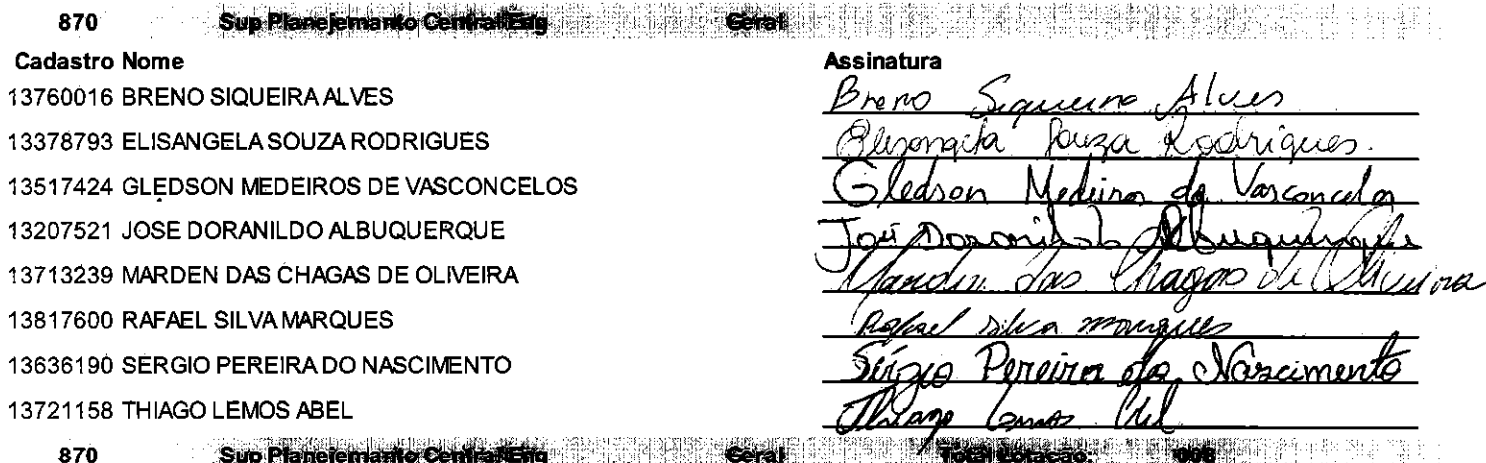 870 Sup Planejemanto Central/Eng Geral
Cadastro Nome Assinatura
13760016 BRENO SIQUEIRA ALVES Breno Siqueira Alves
13378793 ELISANGELA SOUZA RODRIGUES Elisangela Souza Rodrigues.
13517424 GLEDSON MEDEIROS DE VASCONCELOS Gledson Medeiros de Vasconcelos
13207521 JOSE DORANILDO ALBUQUERQUE José Doranildo Albuquerque
13713239 MARDEN DAS CHAGAS DE OLIVEIRA Marden das Chagas de Oliveira
13817600 RAFAEL SILVA MARQUES Rafael silva marques
13636190 SERGIO PEREIRA DO NASCIMENTO Sérgio Pereira do Nascimento
13721158 THIAGO LEMOS ABEL Thiago Lemos Abel
870 Sup Planejemanto Central/Eng Geral Total Lotação: 008